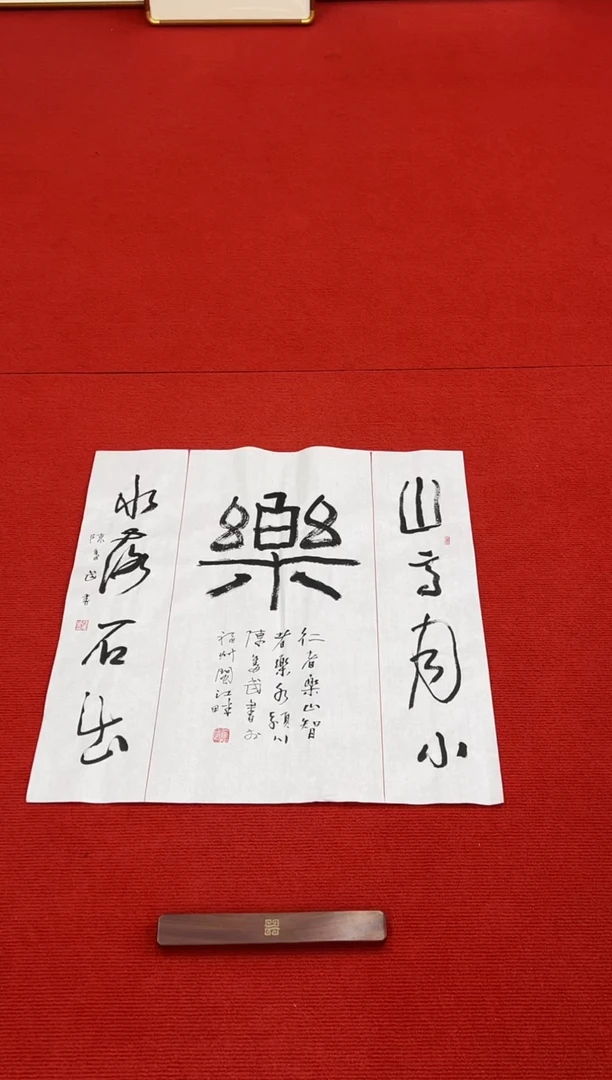 山高月小
樂
仁者樂山智
者樂水潁川
陳為武書於
福州閩江畔
水落石出
陳為武書